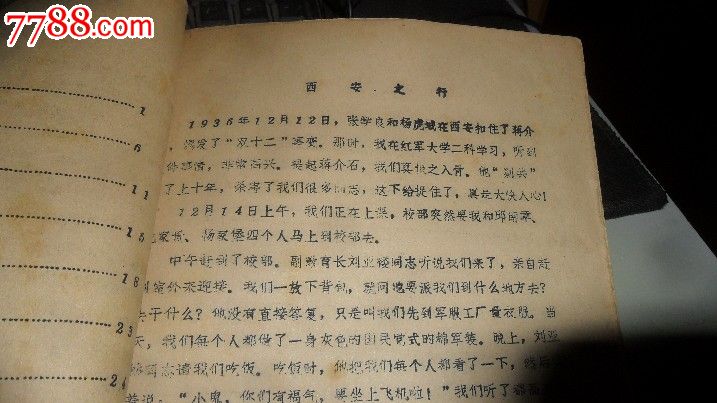 7788.com
1
6
11
15
18
23
24
西安之行
1936年12月12日，张学良和杨虎城在西安扣住了蒋介
，爆发了“双十二”事变。那时，我在红军大学二科学习，听到
事情，非常高兴。提起蒋介石，我们真恨之入骨。他“剿共”
了上十年，杀害了我们很多同志，这下给捉住了，真是大快人心！
12月14日上午，我们正在上课，校部突然要我和邱国章、
家、杨家保四个人马上到校部去。
中午赶到了校部。副教育长刘亚楼同志听说我们来了，亲自赶
到室外来迎接。我们一放下背包，就问他要派我们到什么地方去？
去干什么？他没有直接答复，只是叫我们先到军服工厂量衣服。当
天，我们每个人都做了一身灰色的国民党式的棉军装。晚上，刘亚
楼同志请我们吃饭。吃饭时，他把我们每个人都看了一下，然后
说：“小鬼，你们有福气，要坐上飞机啦！”我们听了都